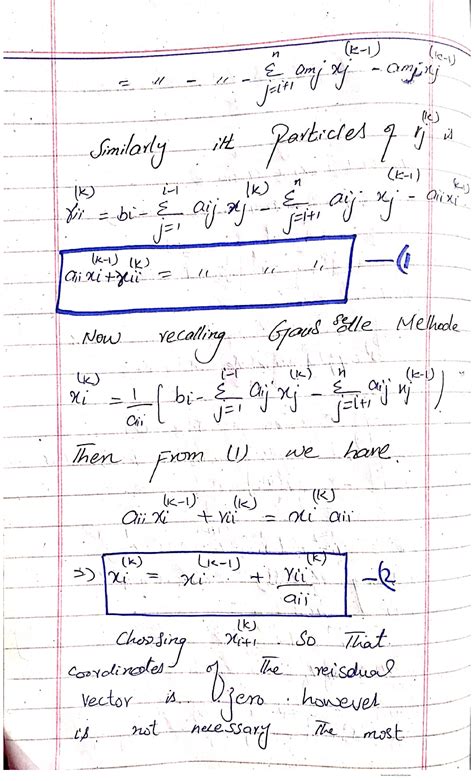 = " - " - Σ_{j=i+1}^{n} amj xj^(k-1) - ami xj^(k-1)
Similarly ith Particles of rj^(k) is
rii^(k) = bi - Σ_{j=1}^{i-1} aij xj^(k) - Σ_{j=i+1}^{n} aij xj^(k-1) - aii xi^(k-1)
aii xi^(k-1) + rii^(k) = " " " —(1
Now recalling Gaus Sedle Methode
xi^(k) = 1/aii [ bi - Σ_{j=1}^{i-1} aij xj^(k) - Σ_{j=i+1}^{n} aij xj^(k-1) ]
Then From (1) we have.
aii xi^(k-1) + rii^(k) = xi^(k) aii
=> xi^(k) = xi^(k-1) + rii^(k)/aii —(2
Choosing xi+1^(k) so That
coordinates of The reisdual
vector is zero. however
is not necessary The most